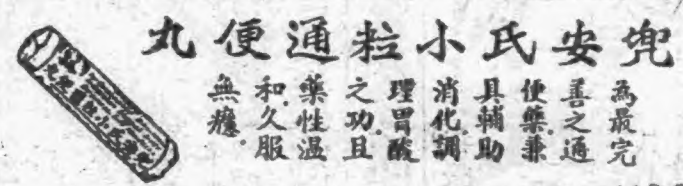 兜安氏小粒通便丸
為最完
善之通
便藥兼
具輔助
消化調
理胃酸
之功且
藥性溫
和久服
無癮